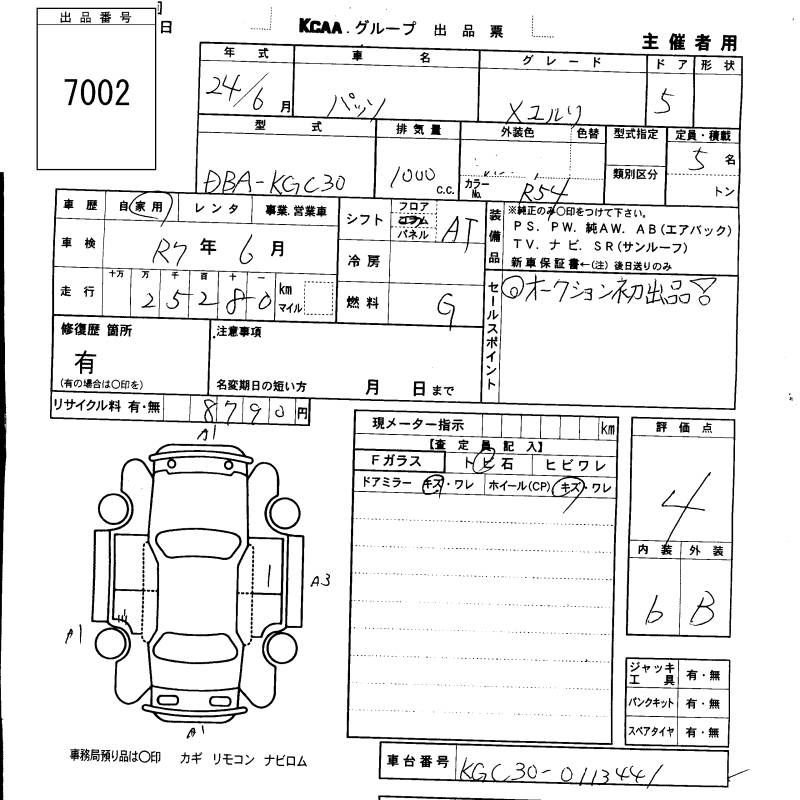 出品番号
7002
日
KCAA.グループ 出品票
主催者用
年式 車名 グレード ドア 形状
24/6月 パッソ Xユルリ 5
型式 排気量 外装色 色替 型式指定 定員・積載
DBA-KGC30 1000 C.C. カラーNo. R54 類別区分 5名
トン
車歴 自家用 レンタ 事業.営業車
車検 R7年6月
走行 十万 万 千 百 十 一
25280 km マイル
シフト フロア コラム パネル AT
冷房
燃料 G
装備品
※純正のみ〇印をつけて下さい。
PS. PW. 純AW. AB(エアバック)
TV. ナビ. SR(サンルーフ)
新車保証書←(注)後日送りのみ
セールスポイント
◎オークション初出品!
修復歴 箇所
有
(有の場合は〇印を)
注意事項
名変期日の短い方 月 日まで
リサイクル料 有・無 8790円
現メーター指示 km
【査定員記入】
Fガラス トビ石 ヒビワレ
ドアミラー キズ・ワレ ホイール(CP) キズ・ワレ
評価点
4
内装 外装
b B
A1
A3
A1
A1
ジャッキ工具 有・無
パンクキット 有・無
スペアタイヤ 有・無
事務局預り品は〇印 カギ リモコン ナビロム
車台番号 KGC30-0113441